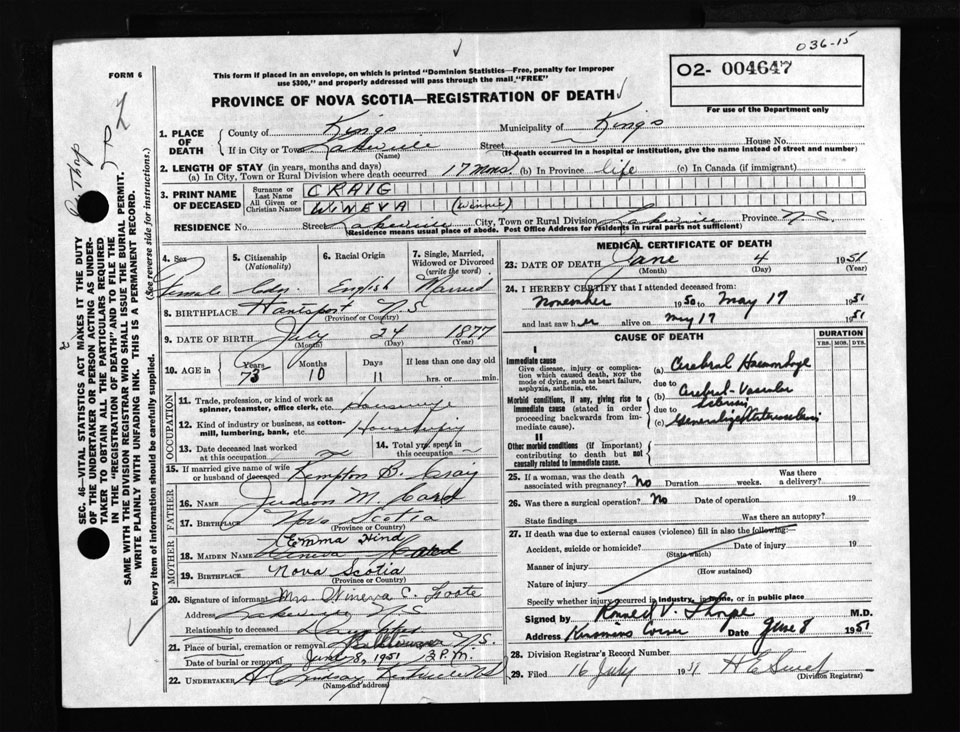 036-15
FORM 6
This form if placed in an envelope, on which is printed "Dominion Statistics—Free, penalty for improper
use $300," and properly addressed will pass through the mail "FREE"
02- 004647
For use of the Department only
PROVINCE OF NOVA SCOTIA—REGISTRATION OF DEATH
1. PLACE OF DEATH
County of Kings Municipality of Kings
If in City or Town Lakeville Street House No.
(Name) (If death occurred in a hospital or institution, give the name instead of street and number)
2. LENGTH OF STAY (in years, months and days)
(a) In City, Town or Rural Division where death occurred 17 mos. (b) In Province life (c) In Canada (if immigrant)
3. PRINT NAME OF DECEASED
Surname or Last Name CRAIG
All Given or Christian Names WINEVA (Winnie)
RESIDENCE No. Street Lakeville City, Town or Rural Division Lakeville Province N.S.
(Residence means usual place of abode. Post Office Address for residents in rural parts not sufficient)
4. Sex Female
5. Citizenship (Nationality) Cdn.
6. Racial Origin English
7. Single, Married, Widowed or Divorced (write the word) Married
8. BIRTHPLACE Hantsport N.S
(Province or Country)
9. DATE OF BIRTH July 24 1877
(Month) (Day) (Year)
10. AGE in Years Months Days If less than one day old
73 10 11 hrs. or min.
OCCUPATION
11. Trade, profession or kind of work as spinner, teamster, office clerk, etc. Housewife
12. Kind of industry or business, as cotton-mill, lumbering, bank, etc. Housekeeping
13. Date deceased last worked at this occupation
14. Total yrs. spent in this occupation
15. If married give name of wife or husband of deceased Kempton B. Craig
FATHER
16. NAME Judson M. Card
17. BIRTHPLACE Nova Scotia
(Province or Country)
MOTHER
Emma Hind
18. MAIDEN NAME Wineva Card
19. BIRTHPLACE Nova Scotia
(Province or Country)
20. Signature of informant Mrs. Wineva C. Foote
Address Lakeville N.S
Relationship to deceased Daughter
21. Place of burial, cremation or removal N.S.
Date of burial or removal June 8, 1951 2 P.M.
22. UNDERTAKER H C Lindsay Kentville NS
(Name and address)
MEDICAL CERTIFICATE OF DEATH
23. DATE OF DEATH June 4 1951
(Month) (Day) (Year)
24. I HEREBY CERTIFY that I attended deceased from:
November 1950 to May 17 1951
and last saw her alive on May 17 1951
CAUSE OF DEATH
DURATION
YRS. MOS. DYS.
I
Immediate cause
Give disease, injury or complication which caused death, NOT the mode of dying, such as heart failure, asphyxia, asthenia, etc.
(a) Cerebral Haemorrhage
due to
Morbid conditions, if any, giving rise to immediate cause (stated in order proceeding backwards from immediate cause).
(b) Cerebral-Vascular Sclerosis
due to
(c) Generalized Arteriosclerosis
II
Other morbid conditions (if important) contributing to death but not causally related to immediate cause.
25. If a woman, was the death associated with pregnancy? No Duration weeks. Was there a delivery?
26. Was there a surgical operation? No Date of operation 19
State findings Was there an autopsy?
27. If death was due to external causes (violence) fill in also the following:
Accident, suicide or homicide? Date of injury 19
(State which)
Manner of injury
(How sustained)
Nature of injury
Specify whether injury occurred in industry, in home, or in public place
Signed by Ronald V. Thorpe M.D.
Address Kinsmans Corner Date June 8 1951
28. Division Registrar's Record Number
29. Filed 16 July 1951
(Division Registrar)
SEC. 46—VITAL STATISTICS ACT MAKES IT THE DUTY
OF THE UNDERTAKER OR PERSON ACTING AS UNDER-
TAKER TO OBTAIN ALL THE PARTICULARS REQUIRED
IN THE "REGISTRATION OF DEATH" AND TO FILE THE
SAME WITH THE DIVISION REGISTRAR WHO SHALL ISSUE THE BURIAL PERMIT.
WRITE PLAINLY WITH UNFADING INK. THIS IS A PERMANENT RECORD.
Every item of information should be carefully supplied. (See reverse side for instructions.)